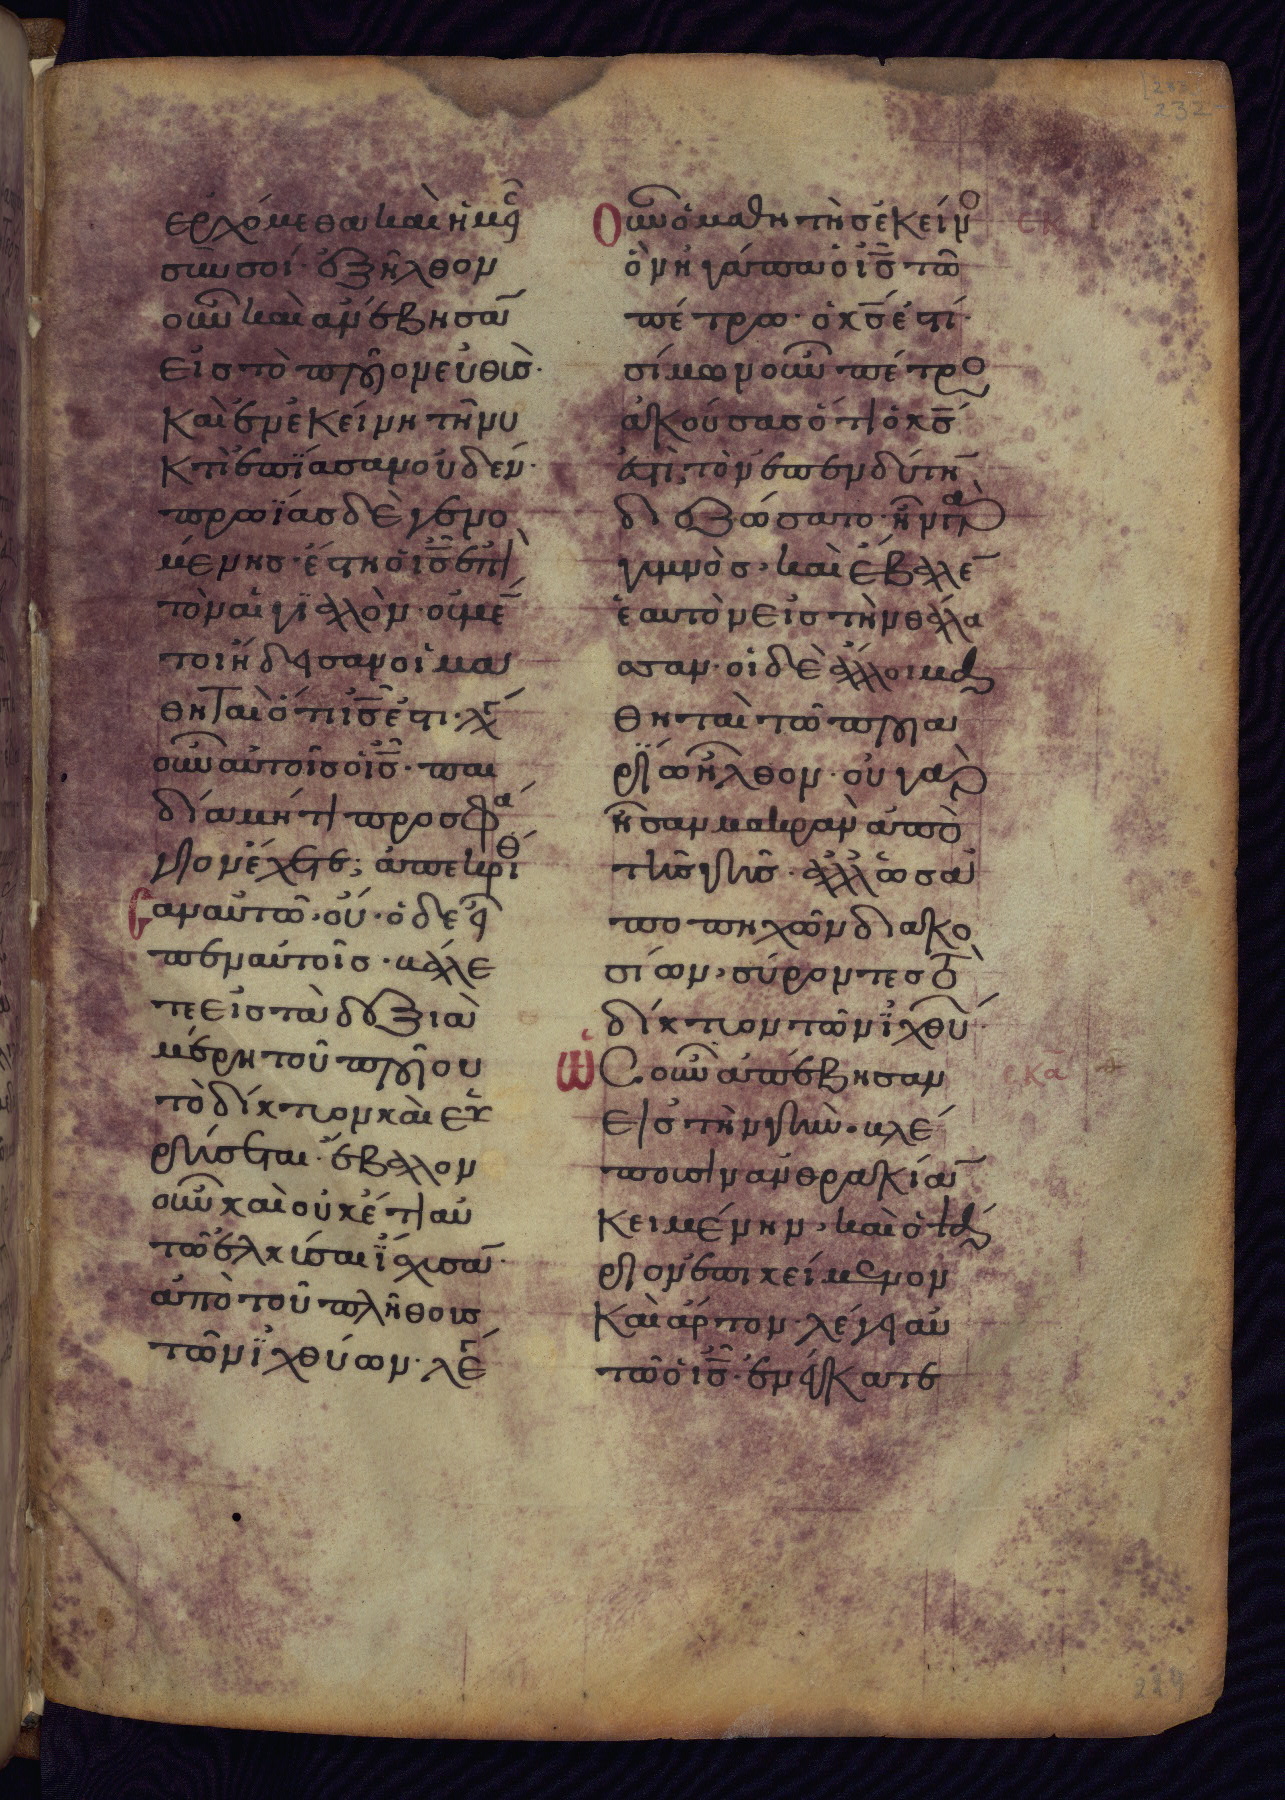 ερχόμεθα καὶ ἡμεῖς
σὺν σοί· ἐξῆλθον
οὖν καὶ ἀνέβησαν
εἰς τὸ πλοῖον εὐθὺς·
καὶ ἐν ἐκείνη τῆ νυ
κτὶ ἐπίασαν οὐδέν·
πρωΐας δὲ γενο
μένης· ἔστη ὁ ις ἐπὶ
τὸν αἰγιαλὸν· οὐ μέν
τοι ἤδεισαν οἱ μα
θηταὶ ὅτι ις ἐστι· λέγει
οὖν αὐτοῖς ὁ ις· παι
δία μή τι προσφά
γιον ἔχετε; ἀπεκρίθη
σαν αὐτῶ· οὔ· ὁ δὲ εἶ
πεν αὐτοῖς· βάλε
τε εἰς τὰ δεξιὰ
μέρη τοῦ πλοίου
τὸ δίκτυον καὶ εὑ
ρήσετε· ἔβαλον
οὖν καὶ οὐκέτι αὐ
τὸ ἑλκύσαι ἴσχυσαν·
ἀπὸ τοῦ πλήθους
τῶν ἰχθύων· λέγει
οὖν ὁ μαθητὴς ἐκεῖνος
ὃν ἠγάπα ὁ ις τῶ
πέτρω· ὁ κς ἐστί·
σίμων οὖν πέτρος
ἀκούσας ὅτι ὁ κς
ἐστι, τὸν ἐπενδύτην
διεζώσατο· ἦν γὰρ
γυμνὸς· καὶ ἔβαλεν
ἑαυτὸν εἰς τὴν θάλα
σσαν· οἱ δὲ ἄλλοι μα
θηταὶ τῶ πλοια
ρίω ἦλθον· οὐ γὰρ
ἦσαν μακρὰν ἀπὸ
τῆς γῆς· ἀλλ' ὡς ἀ
πὸ πηχῶν διακο
σίων, σύροντες τὸ
δίκτυον τῶν ἰχθύων·
ὡς οὖν ἀπέβησαν
εἰς τὴν γῆν· βλέ
πουσιν ἀνθρακίαν
κειμένην, καὶ ὀψά
ριον ἐπικείμενον
καὶ ἄρτον· λέγει αὐ
τοῖς ὁ ις· ἐνέγκατε
σκ
σκα
232
229